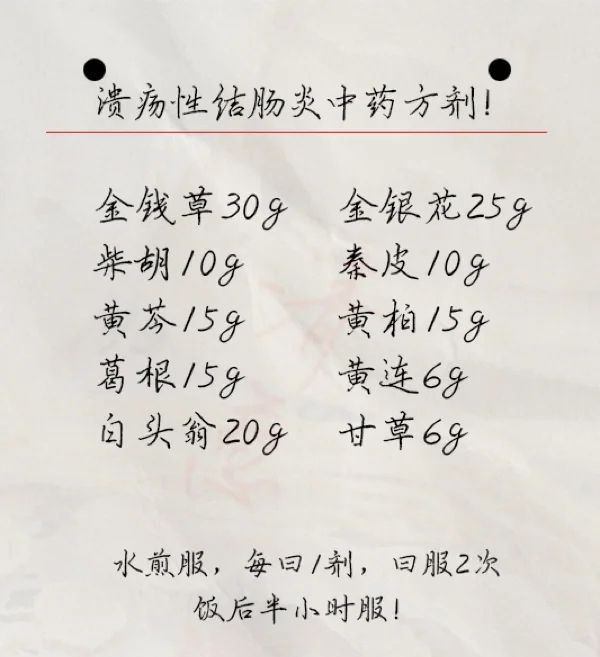 溃疡性结肠炎中药方剂！
金钱草30g 金银花25g
柴胡10g 秦皮10g
黄芩15g 黄柏15g
葛根15g 黄连6g
白头翁20g 甘草6g
水煎服，每日1剂，日服2次
饭后半小时服！